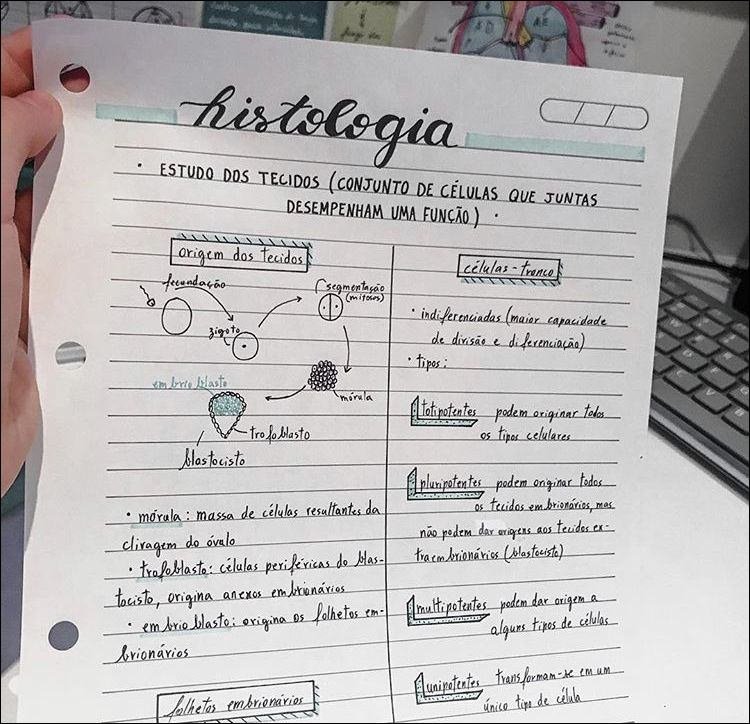 histologia
• ESTUDO DOS TECIDOS (CONJUNTO DE CÉLULAS QUE JUNTAS
DESEMPENHAM UMA FUNÇÃO) •
origem dos tecidos
fecundação
segmentação
(mitoses)
zigoto
mórula
embrioblasto
trofoblasto
blastocisto
• mórula: massa de células resultantes da
clivagem do óvulo
• trofoblasto: células periféricas do blas-
tocisto, origina anexos embrionários
• embrioblasto: origina os folhetos em-
brionários
folhetos embrionários
células-tronco
• indiferenciadas (maior capacidade
de divisão e diferenciação)
• tipos:
totipotentes podem originar todos
os tipos celulares
pluripotentes podem originar todos
os tecidos embrionários, mas
não podem dar origens aos tecidos ex-
traembrionários (blastocisto)
multipotentes podem dar origem a
alguns tipos de células
unipotentes transformam-se em um
único tipo de célula